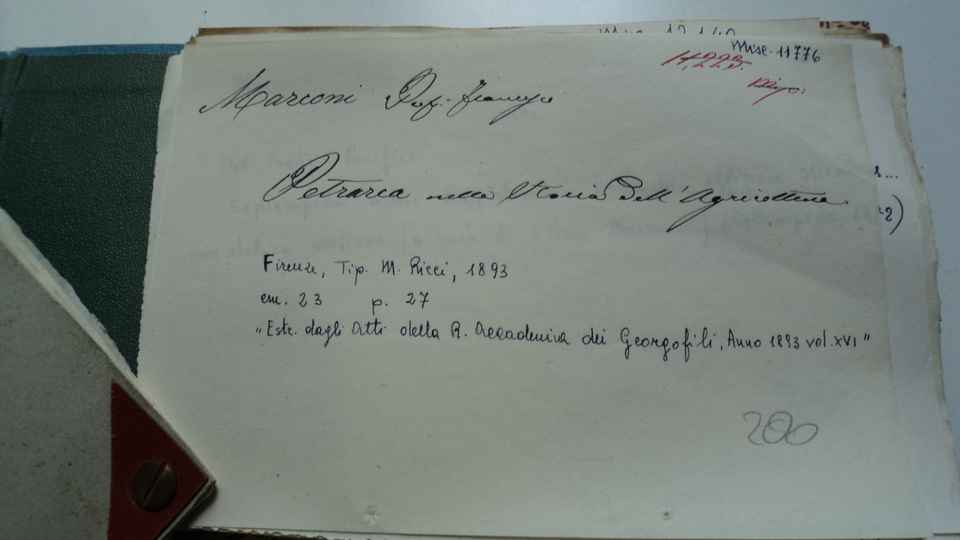 Misc. 11776
14223.
Marconi Prof. Francesco
Petrarca nella Storia Dell' Agricoltura
Firenze, Tip. M. Ricci, 1893
cm. 23 p. 27
"Estr. dagli Atti della R. Accademia dei Georgofili, Anno 1893 vol. XVI"
200